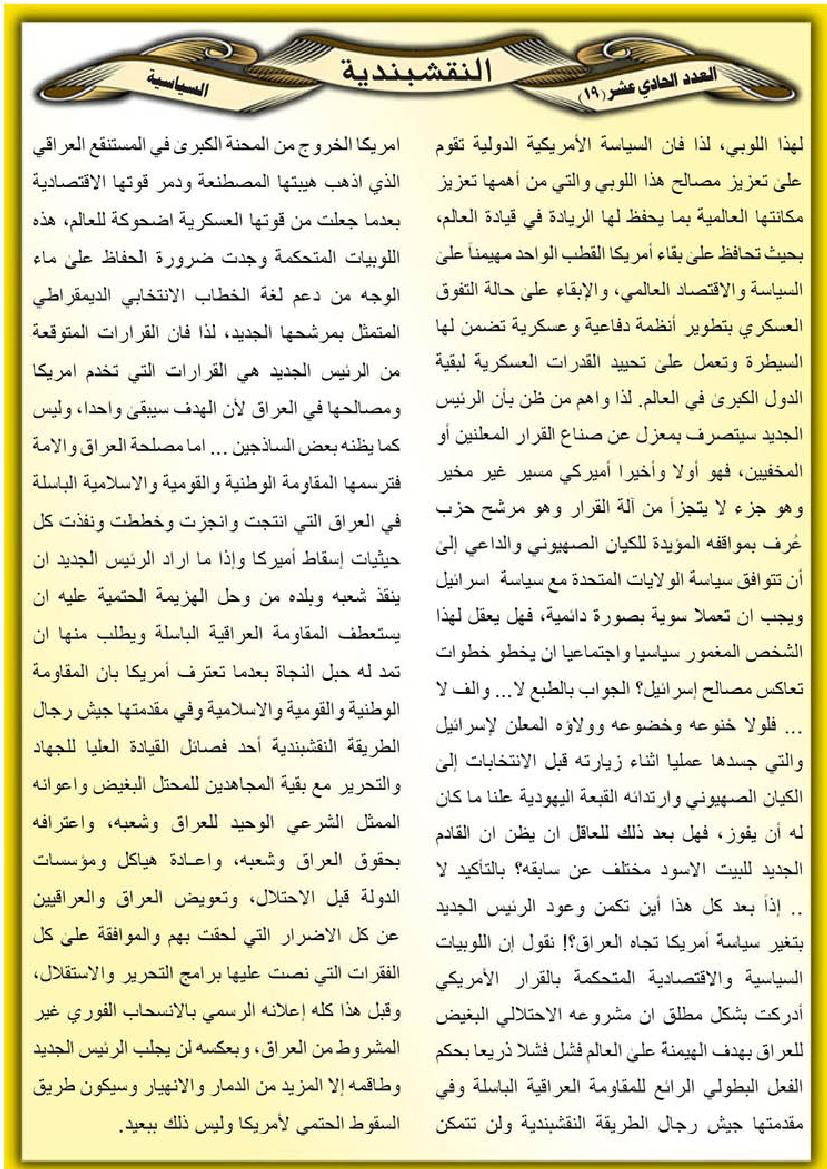 العدد الحادي عشر (١٩)
النقشبندية
السياسية
لهذا اللوبي، لذا فان السياسة الأمريكية الدولية تقوم
على تعزيز مصالح هذا اللوبي والتي من أهمها تعزيز
مكانتها العالمية بما يحفظ لها الريادة في قيادة العالم،
بحيث تحافظ على بقاء أمريكا القطب الواحد مهيمناً على
السياسة والاقتصاد العالمي، والإبقاء على حالة التفوق
العسكري بتطوير أنظمة دفاعية وعسكرية تضمن لها
السيطرة وتعمل على تحييد القدرات العسكرية لبقية
الدول الكبرى في العالم. لذا واهم من ظن بأن الرئيس
الجديد سيتصرف بمعزل عن صناع القرار المعلنين أو
المخفيين، فهو أولا وأخيرا أميركي مسير غير مخير
وهو جزء لا يتجزأ من آلة القرار وهو مرشح حزب
عُرف بمواقفه المؤيدة للكيان الصهيوني والداعي إلى
أن تتوافق سياسة الولايات المتحدة مع سياسة اسرائيل
ويجب ان تعملا سوية بصورة دائمية، فهل يعقل لهذا
الشخص المغمور سياسيا واجتماعيا ان يخطو خطوات
تعاكس مصالح إسرائيل؟ الجواب بالطبع لا... والف لا
... فلولا خنوعه وخضوعه وولاؤه المعلن لإسرائيل
والتي جسدها عمليا اثناء زيارته قبل الانتخابات إلى
الكيان الصهيوني وارتدائه القبعة اليهودية علنا ما كان
له أن يفوز، فهل بعد ذلك للعاقل ان يظن ان القادم
الجديد للبيت الاسود مختلف عن سابقه؟ بالتأكيد لا
.. إذاً بعد كل هذا أين تكمن وعود الرئيس الجديد
بتغير سياسة أمريكا تجاه العراق؟! نقول إن اللوبيات
السياسية والاقتصادية المتحكمة بالقرار الأمريكي
أدركت بشكل مطلق ان مشروعه الاحتلالي البغيض
للعراق بهدف الهيمنة على العالم فشل فشلا ذريعا بحكم
الفعل البطولي الرائع للمقاومة العراقية الباسلة وفي
مقدمتها جيش رجال الطريقة النقشبندية ولن تتمكن
امريكا الخروج من المحنة الكبرى في المستنقع العراقي
الذي اذهب هيبتها المصطنعة ودمر قوتها الاقتصادية
بعدما جعلت من قوتها العسكرية اضحوكة للعالم، هذه
اللوبيات المتحكمة وجدت ضرورة الحفاظ على ماء
الوجه من دعم لغة الخطاب الانتخابي الديمقراطي
المتمثل بمرشحها الجديد، لذا فان القرارات المتوقعة
من الرئيس الجديد هي القرارات التي تخدم امريكا
ومصالحها في العراق لأن الهدف سيبقى واحدا، وليس
كما يظنه بعض الساذجين ... اما مصلحة العراق والامة
فترسمها المقاومة الوطنية والقومية والاسلامية الباسلة
في العراق التي انتجت وانجزت وخططت ونفذت كل
حيثيات إسقاط أميركا وإذا ما اراد الرئيس الجديد ان
ينقذ شعبه وبلده من وحل الهزيمة الحتمية عليه ان
يستعطف المقاومة العراقية الباسلة ويطلب منها ان
تمد له حبل النجاة بعدما تعترف أمريكا بان المقاومة
الوطنية والقومية والاسلامية وفي مقدمتها جيش رجال
الطريقة النقشبندية أحد فصائل القيادة العليا للجهاد
والتحرير مع بقية المجاهدين للمحتل البغيض واعوانه
الممثل الشرعي الوحيد للعراق وشعبه، واعترافه
بحقوق العراق وشعبه، واعـادة هياكل ومؤسسات
الدولة قبل الاحتلال، وتعويض العراق والعراقيين
عن كل الاضرار التي لحقت بهم والموافقة على كل
الفقرات التي نصت عليها برامج التحرير والاستقلال،
وقبل هذا كله إعلانه الرسمي بالانسحاب الفوري غير
المشروط من العراق، وبعكسه لن يجلب الرئيس الجديد
وطاقمه إلا المزيد من الدمار والانهيار وسيكون طريق
السقوط الحتمي لأمريكا وليس ذلك ببعيد.